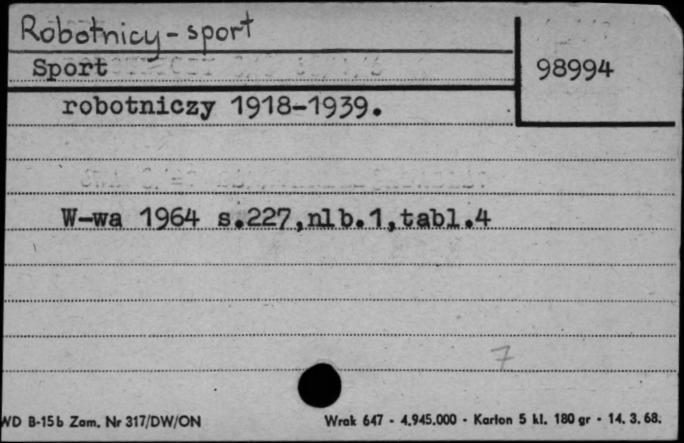 Robotnicy - sport
Sport
98994
robotniczy 1918-1939.
W-wa 1964 s.227,nlb.1,tabl.4
7
WD B-15b Zam. Nr 317/DW/ON
Wrak 647 - 4.945.000 - Karton 5 kl. 180 gr - 14. 3. 68.